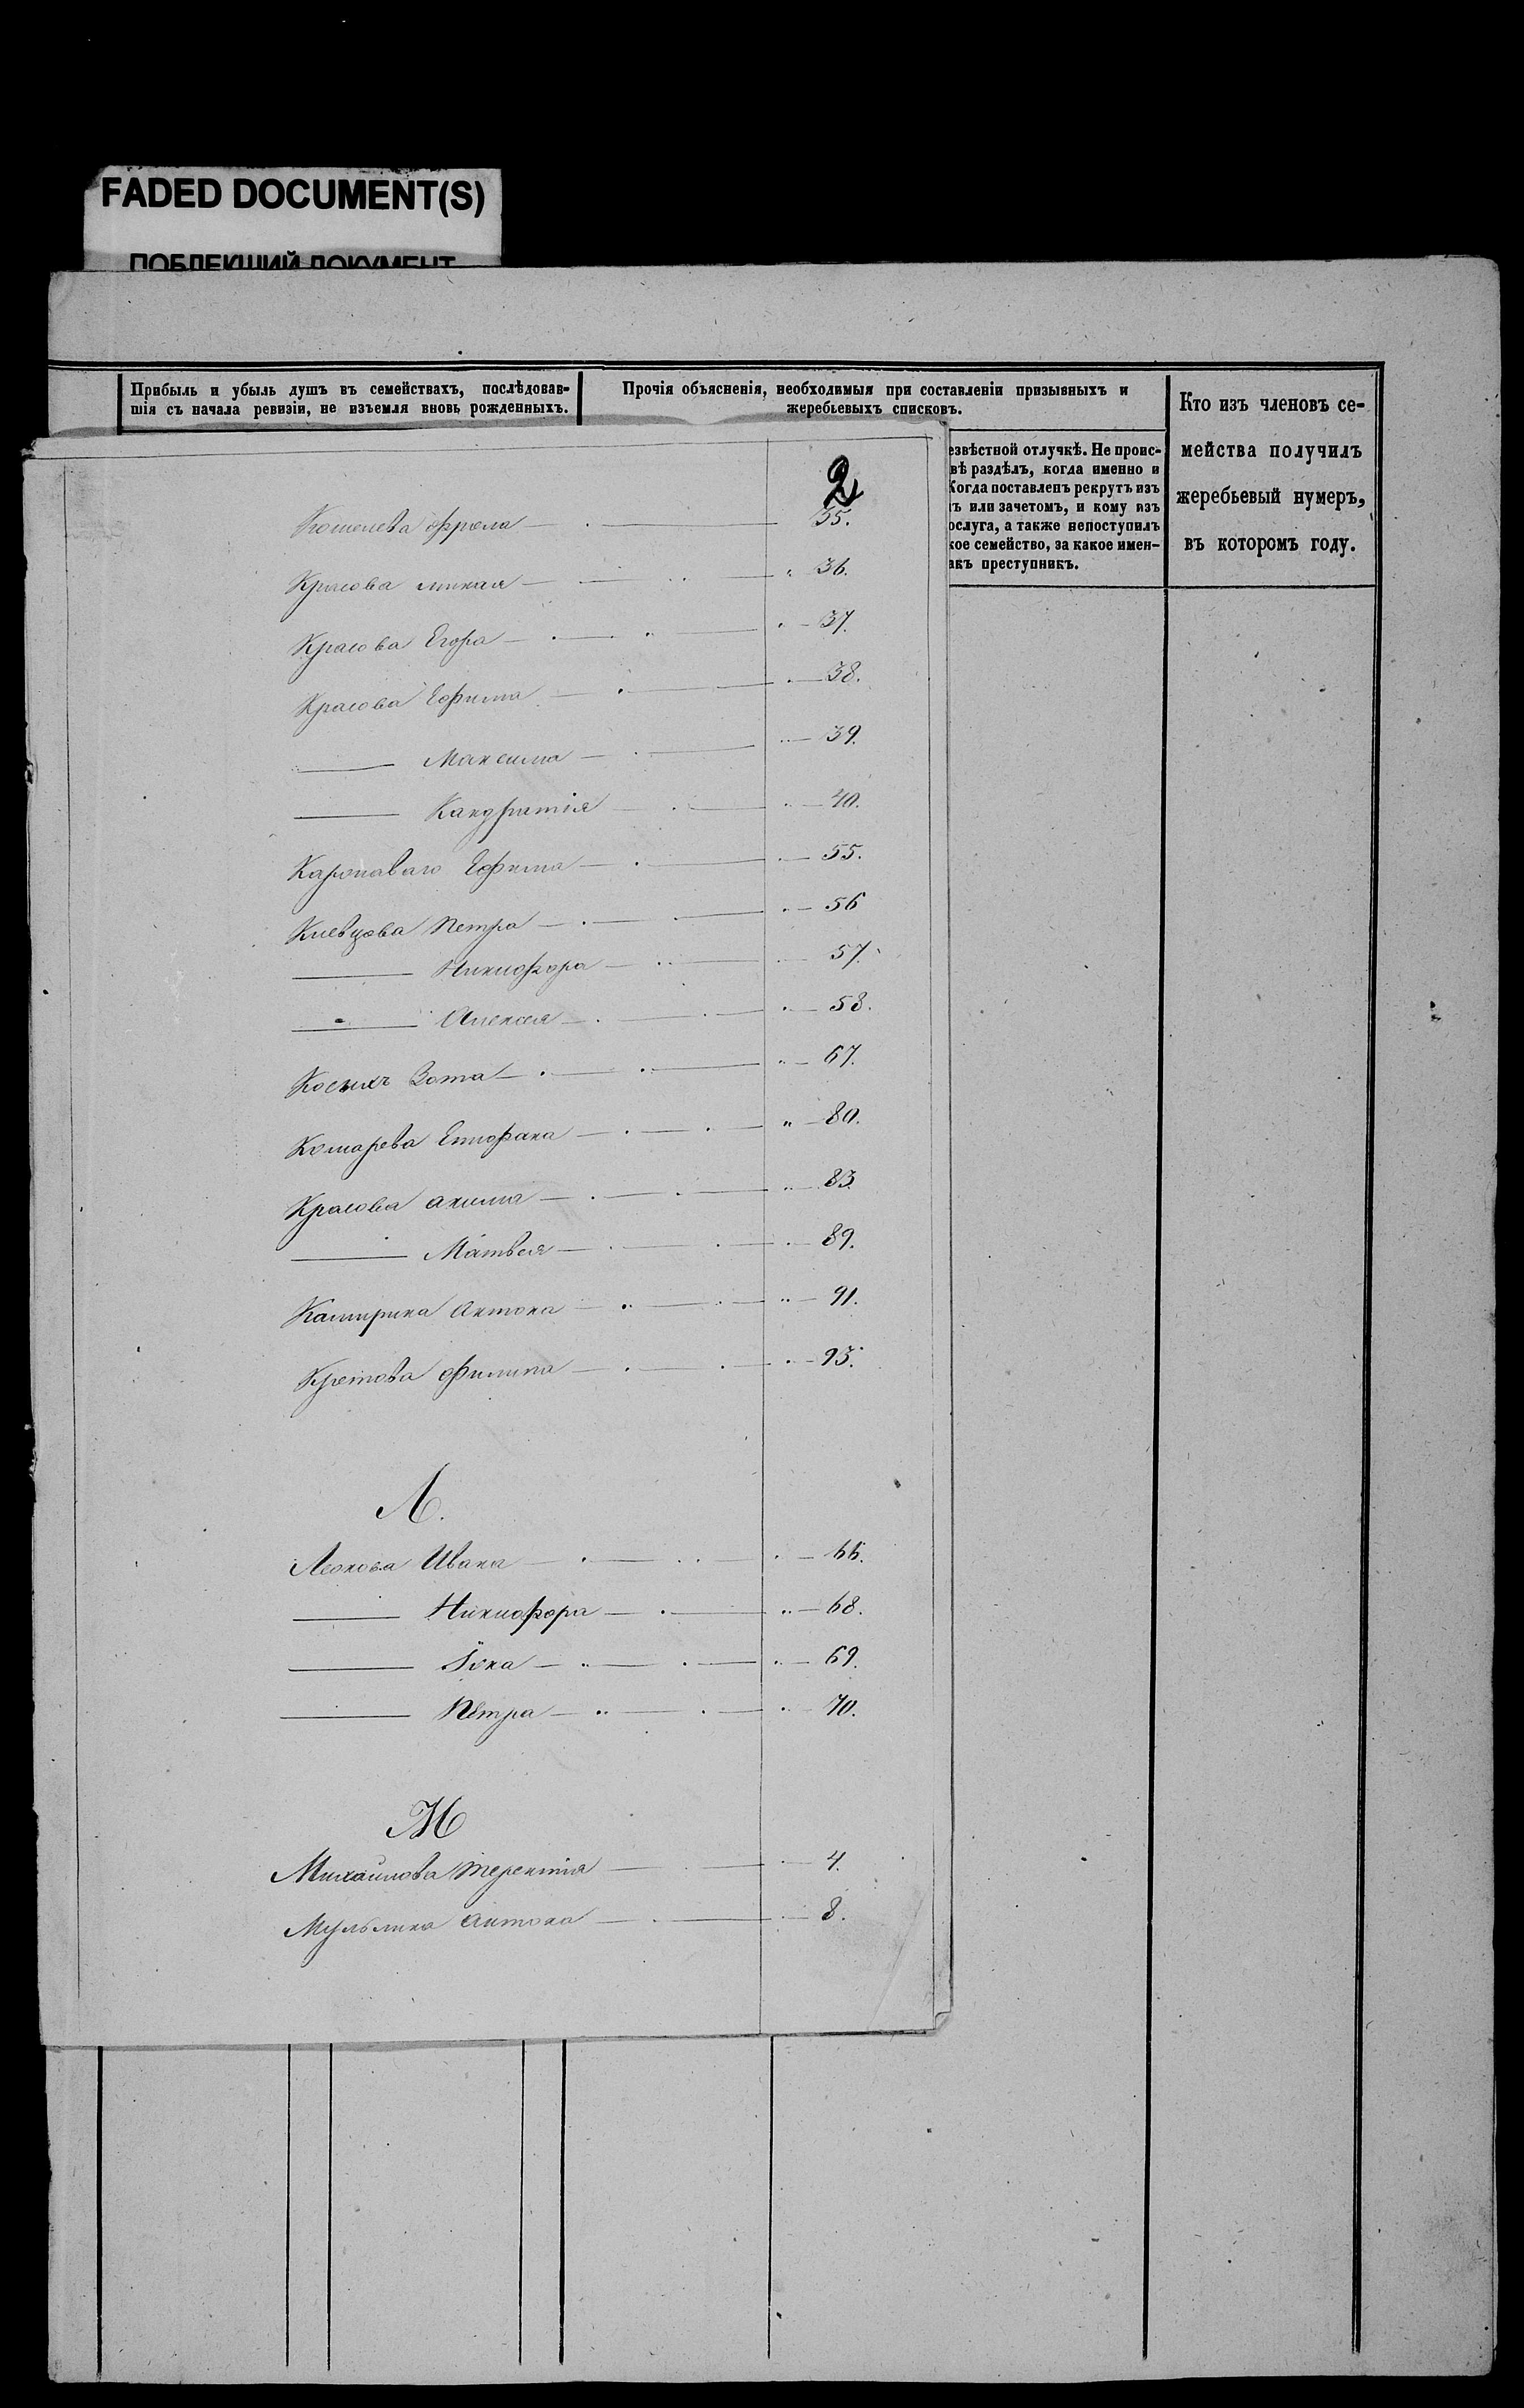 FADED DOCUMENT(S)
ПОБЛЕКШИЙ ДОКУМЕНТ
Прибыль и убыль душъ въ семействахъ, послѣдовав-
шія съ начала ревизіи, не изъемля вновь рожденныхъ.
Прочія объясненія, необходимыя при составленіи призывныхъ и
жеребьевыхъ списковъ.
езвѣстной отлучкѣ. Не проис-
вѣ раздѣлъ, когда именно и
Когда поставленъ рекрутъ изъ
ъ или зачетомъ, и кому изъ
ослуга, а также непоступилъ
кое семейство, за какое имен-
акъ преступникъ.
Кто изъ членовъ се-
мейства получилъ
жеребьевый нумеръ,
въ которомъ году.
2
Кошелева Фрола — 35.
Красова — 36.
Красова Егора — 37.
Красова Ефима — 38.
— Максима — 39.
— Кандратія — 40.
Ефима — 55.
Киевцова Петра — 56
— Никифора — 57.
— Алексея — 58.
Косыхъ Зота — 67.
Комарева Епифана — 80.
Красова акима — 83.
— Матвея — 89.
Антона — 91.
Кретова Филипа — 93.
Л.
Леонова Ивана — 66.
— Никифора — 68.
— Іона — 69.
— Петра — 70.
М
Михайлова Терентія — 4.
Антона — 8.